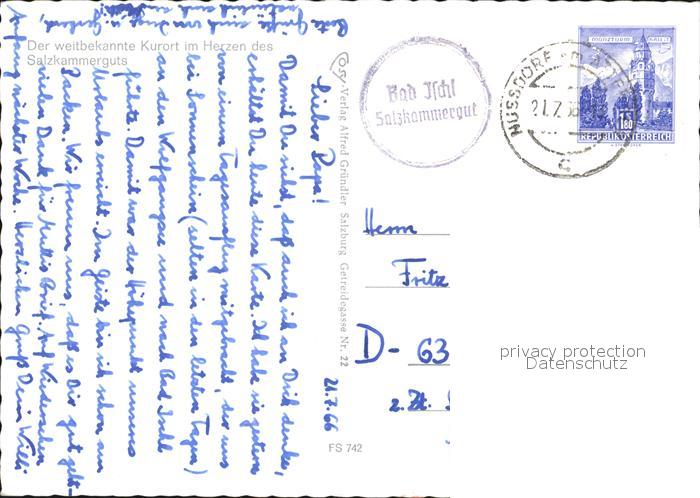 Der weitbekannte Kurort im Herzen des
Salzkammerguts
Cosy-Verlag Alfred Gründler Salzburg Getreidegasse Nr. 22
FS 742
Bad Ischl
Salzkammergut
NUSSDORF AM ATTERSEE
21.7.66
c
MÜNZTURM HALL I. T.
S 1.80
REPUBLIK ÖSTERREICH
21.7.66
Lieber Papa!
Damit Du siehst, daß auch ich an Dich denke,
erhältst Du heute diese Karte. Ich habe sie gestern
von einem Tagesausflug mitgebracht, der uns
bei Sonnenschein (selten in den letzten Tagen)
an den Wolfgangsee und nach Bad Ischl
führte. Damit war der Höhepunkt unseres
Urlaubs erreicht. Im Geiste bin ich schon am
Packen. Wir freuen uns, daß es Dir gut geht.
Vielen Dank für Muttis Brief. Auf Wiedersehen
Anfang nächster Woche. Herzlichen Gruß Dein Willi
Herrn
Fritz
D- 63
z. Zt.
privacy protection
Datenschutz